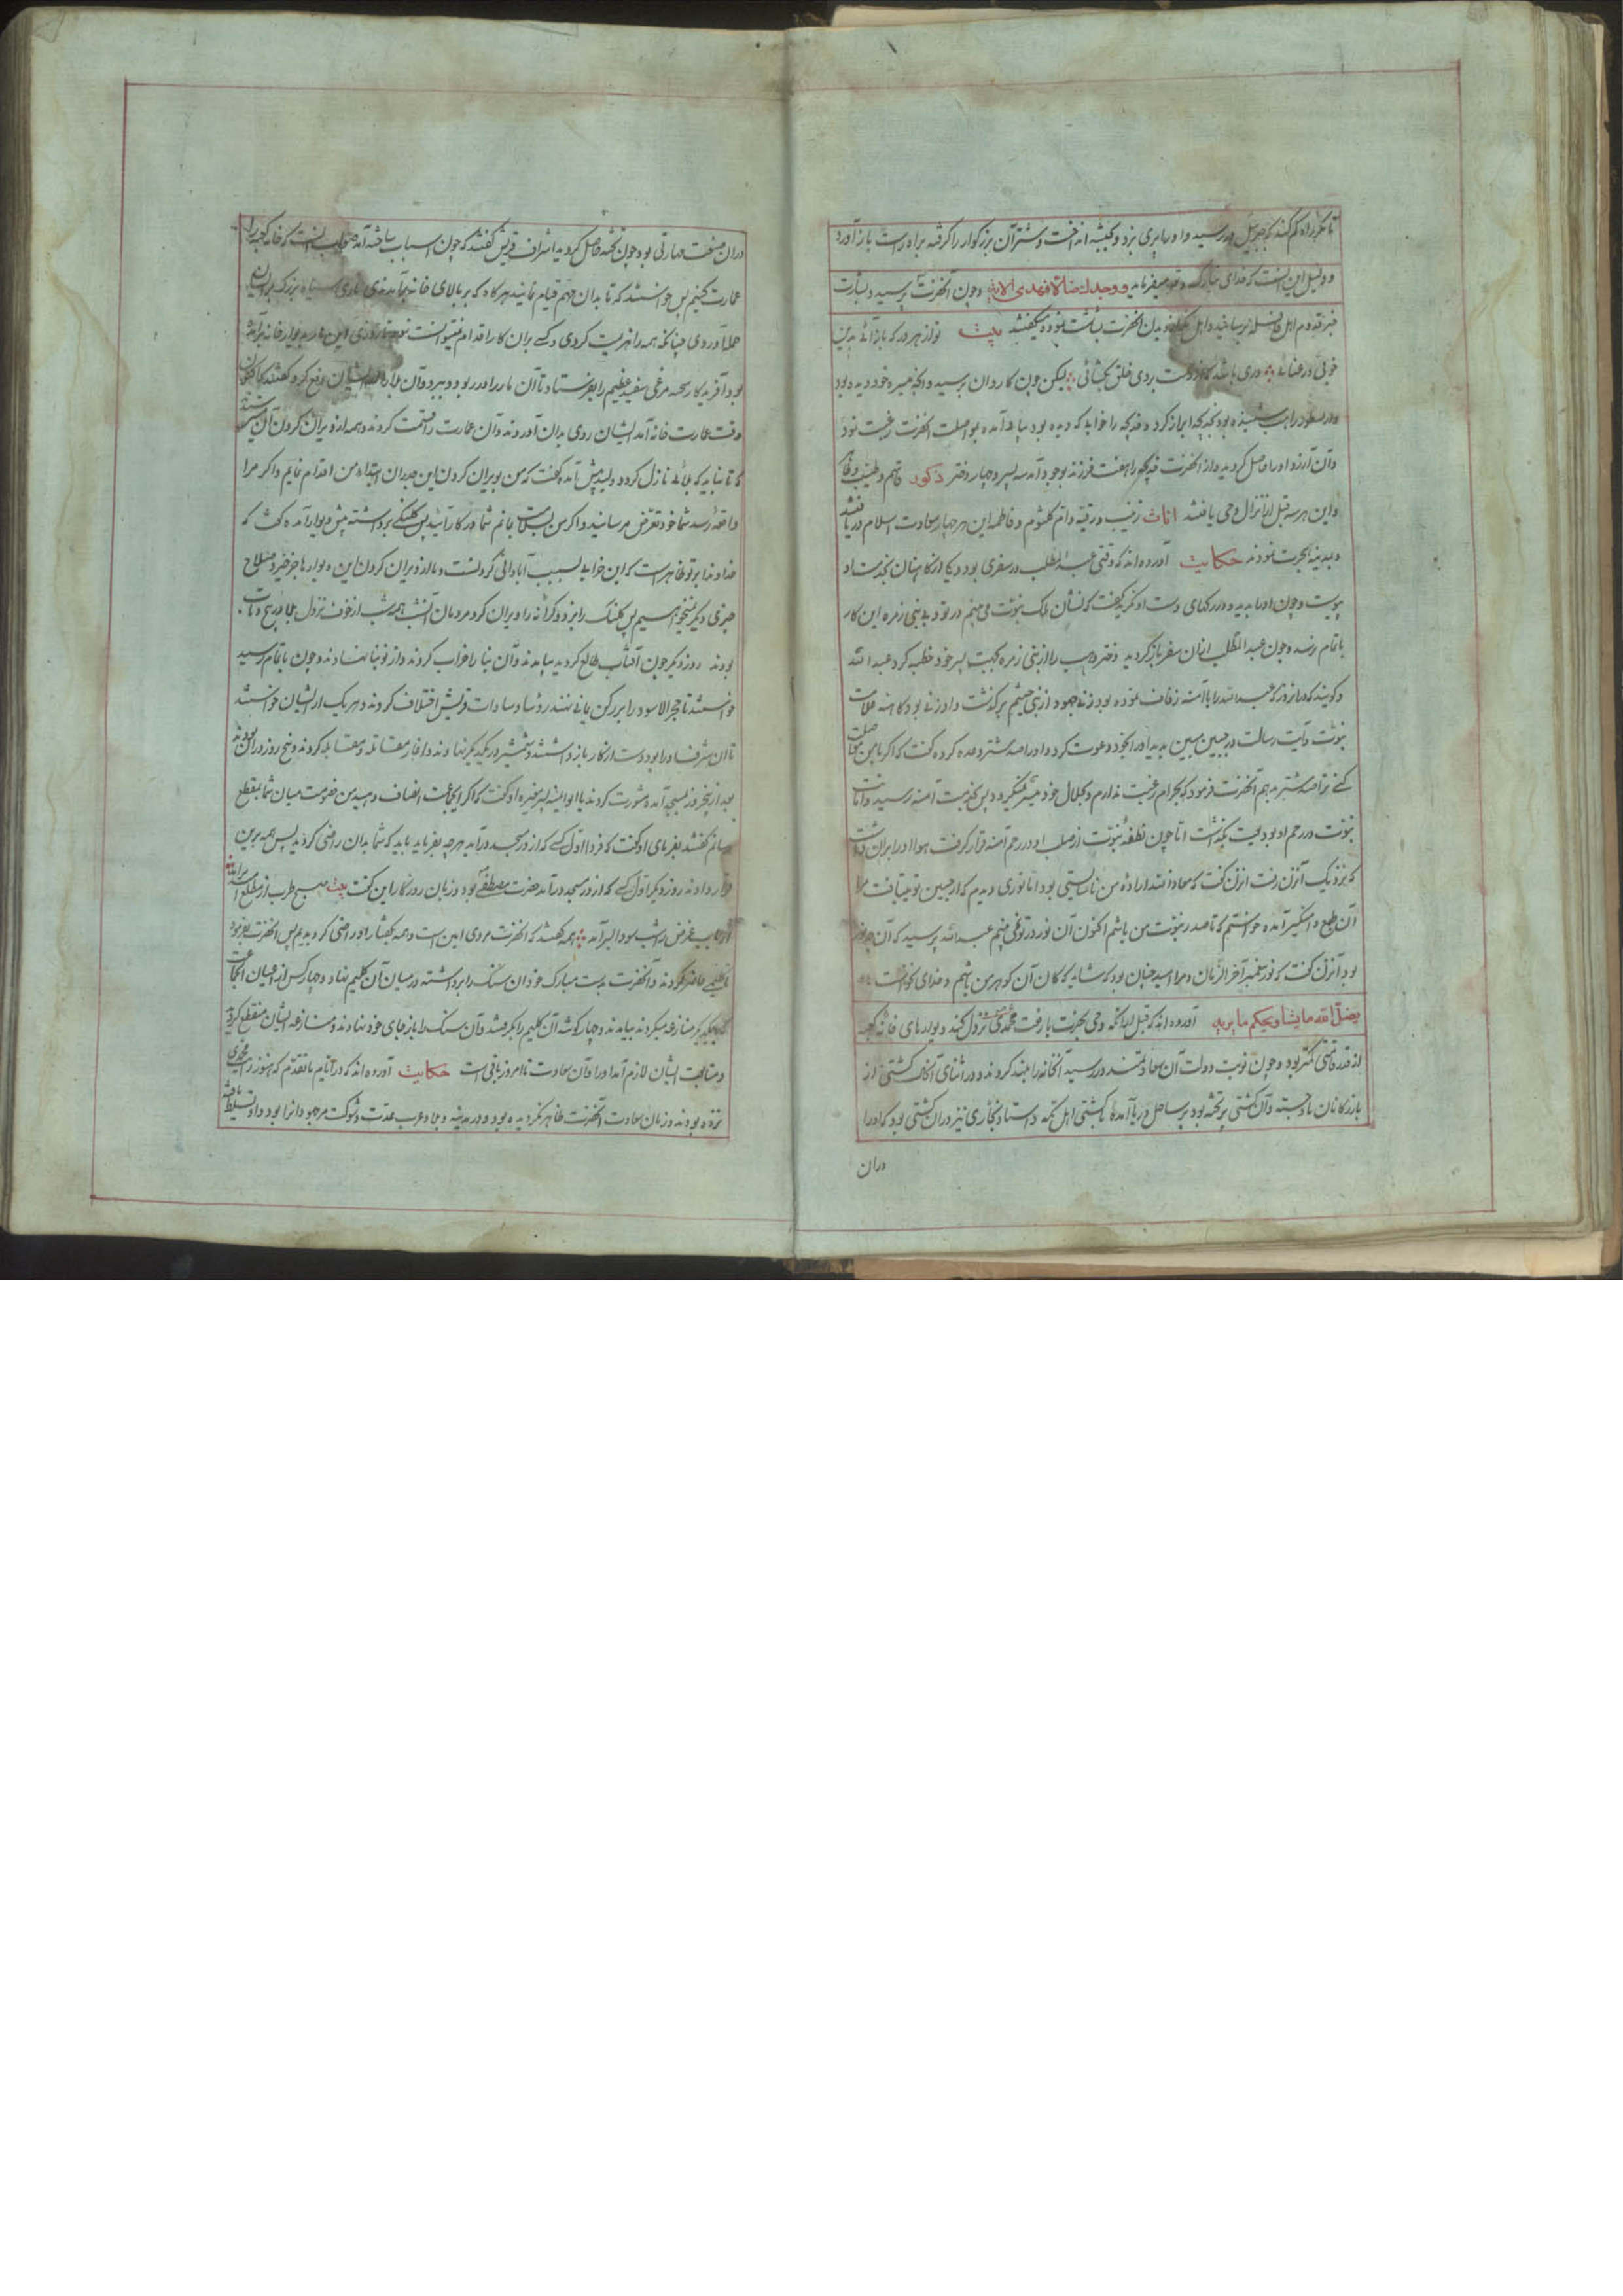 تا مگر راه گم کند که جبرئیل در رسید و او را پری بزد و بحبشه انداخت و شتر آن بزرگوار را گرفته براه راست باز آورد
و دلیل این آنست که خدای تبارک و تع میفرماید ووجدک ضالا فهدی الایه و چون آنحضرت برسید و بشارت
خبر قدوم اهل قافله برسانید و اهل مکه بدیدن آنحضرت بشاشت نموده میگفتند بیت تو از هر در که باز آئی بدین
خوبی و رعنائی دری باشد که از رحمت بروی خلق بگشائی لیکن چون کاروان برسید و آنچه میسره خود دیده بود
و از نسطور راهب شنیده بود بخدیجه ابراز کرد و خدیجه را خوابی که دیده بود بیاد آمده بمواصلت آنحضرت رغبت نمود
و آن آرزو او را حاصل گردید و از آنحضرت خدیجه را هفت فرزند بوجود آمد سه پسر و چهار دختر ذکور قاسم و طیب و طاهر
و این هر سه قبل از انزال وحی یافتند اناث زینب و رقیه و ام کلثوم و فاطمه این هر چهار سعادت اسلام دریافتند
و بمدینه هجرت نمودند حکایت آورده‌اند که وقتی عبد المطلب در سفری بود و یکی از کاهنان بخدمت او
پیوست و چون او را بدید و در رگهای دست او نگریه گفت که نشان ملک و نبوت می بینم در تو و بدینی زهره این کار
باتمام رسد و چون عبد المطلب از آن سفر باز گردید دختر وهب را از بنی زهره بجهت پسر خود خطبه کرد عبد الله
و گویند که در آنروز که عبد الله را با آمنه زفاف نموده بود زنی جهود از بنی خثعم برگذشت و او زنی بود کاهنه علامت
نبوت و آیت رسالت در جبین مبین بدید او را بخود دعوت کرد و او را صد شتر وعده کرده گفت که اگر با من مواصلت
کنی ترا صد شتر بدهم آنحضرت فرمود که بحرام رغبت ندارم و بحلال خود میسر نمیگردد پس بخدمت آمنه رسید و امانت
نبوت در رحم او بودیعت بگذاشت اما چون نطفه نبوت از صلب او در رحم آمنه قرار گرفت هوا او را بر آن داشت
که نزدیک آنزن رفت آنزن گفت که معاذ الله اراده من ناشایستی بود اما نوری دیدم که از جبین تو میتافت مرا
آن طمع دامنگیر آمده خواستم که تا صدر نبوت من باشم اکنون آن نور در تو نمی بینم عبد الله پرسید که آن چه نور
بود آنزن گفت که نور پیغمبر آخر الزمان و مرا امید چنان بود که شاید که کان آن گوهر من باشم و خدای نخواست
یفعل الله ما یشاء و یحکم ما یرید آورده‌اند که قبل از آنکه وحی بحضرت با رفعت محمدی نزول کند دیوارهای خانه کعبه
از قد قامتی کمتر بود و چون نوبت دولت آن سعادتمند در رسید آنخانه را بلند کردند و در اثنای آنحال کشتی از
بازرگانان باد جسته و آن کشتی پر تخته بود بر ساحل دریا آمده بشکستی اهل مکه و استاد نجاری نیز در آن کشتی بود که او را
در آن
در آن صنعت مهارتی بود چون تخته حاصل گردید اشراف قریش گفتند که چون اسباب ساخته آمد صواب آنست که خانه کعبه را
عمارت کنیم پس خواستند که تا بدان مهم قیام نمایند هرگاه که بر بالای خانه بر آمدندی ماری سیاه بزرگ بر ایشان
حمله آوردی چنانکه همه را هزیمت کردی و کسی بران کار اقدام نمیتوانست نمود تا روزی این مار بر دیوار خانه بر آمده
بود آفریدگار سبحانه مرغی سفید عظیم را بفرستاد تا آن مار را در ربود و ببرد و آن بلا را از ایشان رفع کرد گفتند که اکنون
وقت عمارت خانه آمد ایشان روی بدان آوردند و آن عمارت را قسمت کردند و همه از ویران کردن آن میترسیدند
که تا نباید که بلائی نازل گردد ولید پیش آمده گفت که من بویران کردن این جدران ابتداء من اقدام نمایم و اگر مرا
واقعه رسد شما خود تعرض مرسانید و اگر من بسلامت بمانم شما در کار آئید پس کلنگی برداشته پیش دیوار آمده گفت که
خداوندا بر تو ظاهر است که این خواب بسبب آبادانی گردانست و ما از ویران کردن این دیوارها جز خیر و صلاح
چیزی دیگر نمیخواهیم پس کلنگ را بزد و کرانه را ویران کرد مردمان آنشب همه شب از خوف نزول بلا در پیچ و تاب
بودند روز دیگر چون آفتاب طالع گردید بیامدند و آن بنا را خراب کردند و از نو بنا نهادند و چون باتمام رسید
خواستند تا حجر الاسود را بر رکن یمانی نهند رؤسا و سادات قریش اختلاف کردند و هر یک از ایشان خواستند
تا آن شرف او را بود دست از کار باز داشتند و شمشیر در یکدیگر نهادند و آغاز مقاتله و مقابله کردند و پنج روز در آن بودند
بعد از پنجروز بمسجد آمده مشورت کردند با ابو امیه پسر مغیره او گفت که اگر ایجماعت انصاف دهید من خصومت میان شما بقطع
رسانم گفتند بفرمای او گفت که فردا اول کسی که از در مسجد در آید هر چه بفرماید باید که شما بدان راضی گردید پس همه برین
قرار دادند روز دیگر اول کسی که از در مسجد در آمد حضرت مصطفی بود و زبان روزگار این گفت بیت صبح طرب از مطلع امید بر آمد
همه گفتند که آنحضرت مردی امین است و همه بگفتار او راضی گردیدیم پس آنحضرت بفرمود
تا گلیمی حاضر کردند و آنحضرت بدست مبارک خود آن سنگ را برداشته در میان آن گلیم نهاد و چهار کس از اعیان آنجماعت
که با یکدیگر منازعه میکردند بیامدند و چهار گوشه آن گلیم را بگرفتند و آن سنگ را باز جای خود نهادند و منازعه ایشان منقطع گردید
و متابعت ایشان لازم آمد او را و آن سعادت تا امروز باقی است حکایت آورده‌اند که در ایام ما تقدم که هنوز رایت محمدی
نزده بودند و زمان سعادت آنحضرت ظاهر نگردیده بود و در مدینه و بلاد عرب عدت و شوکت مر جهودانرا بود و او تسلط یافته